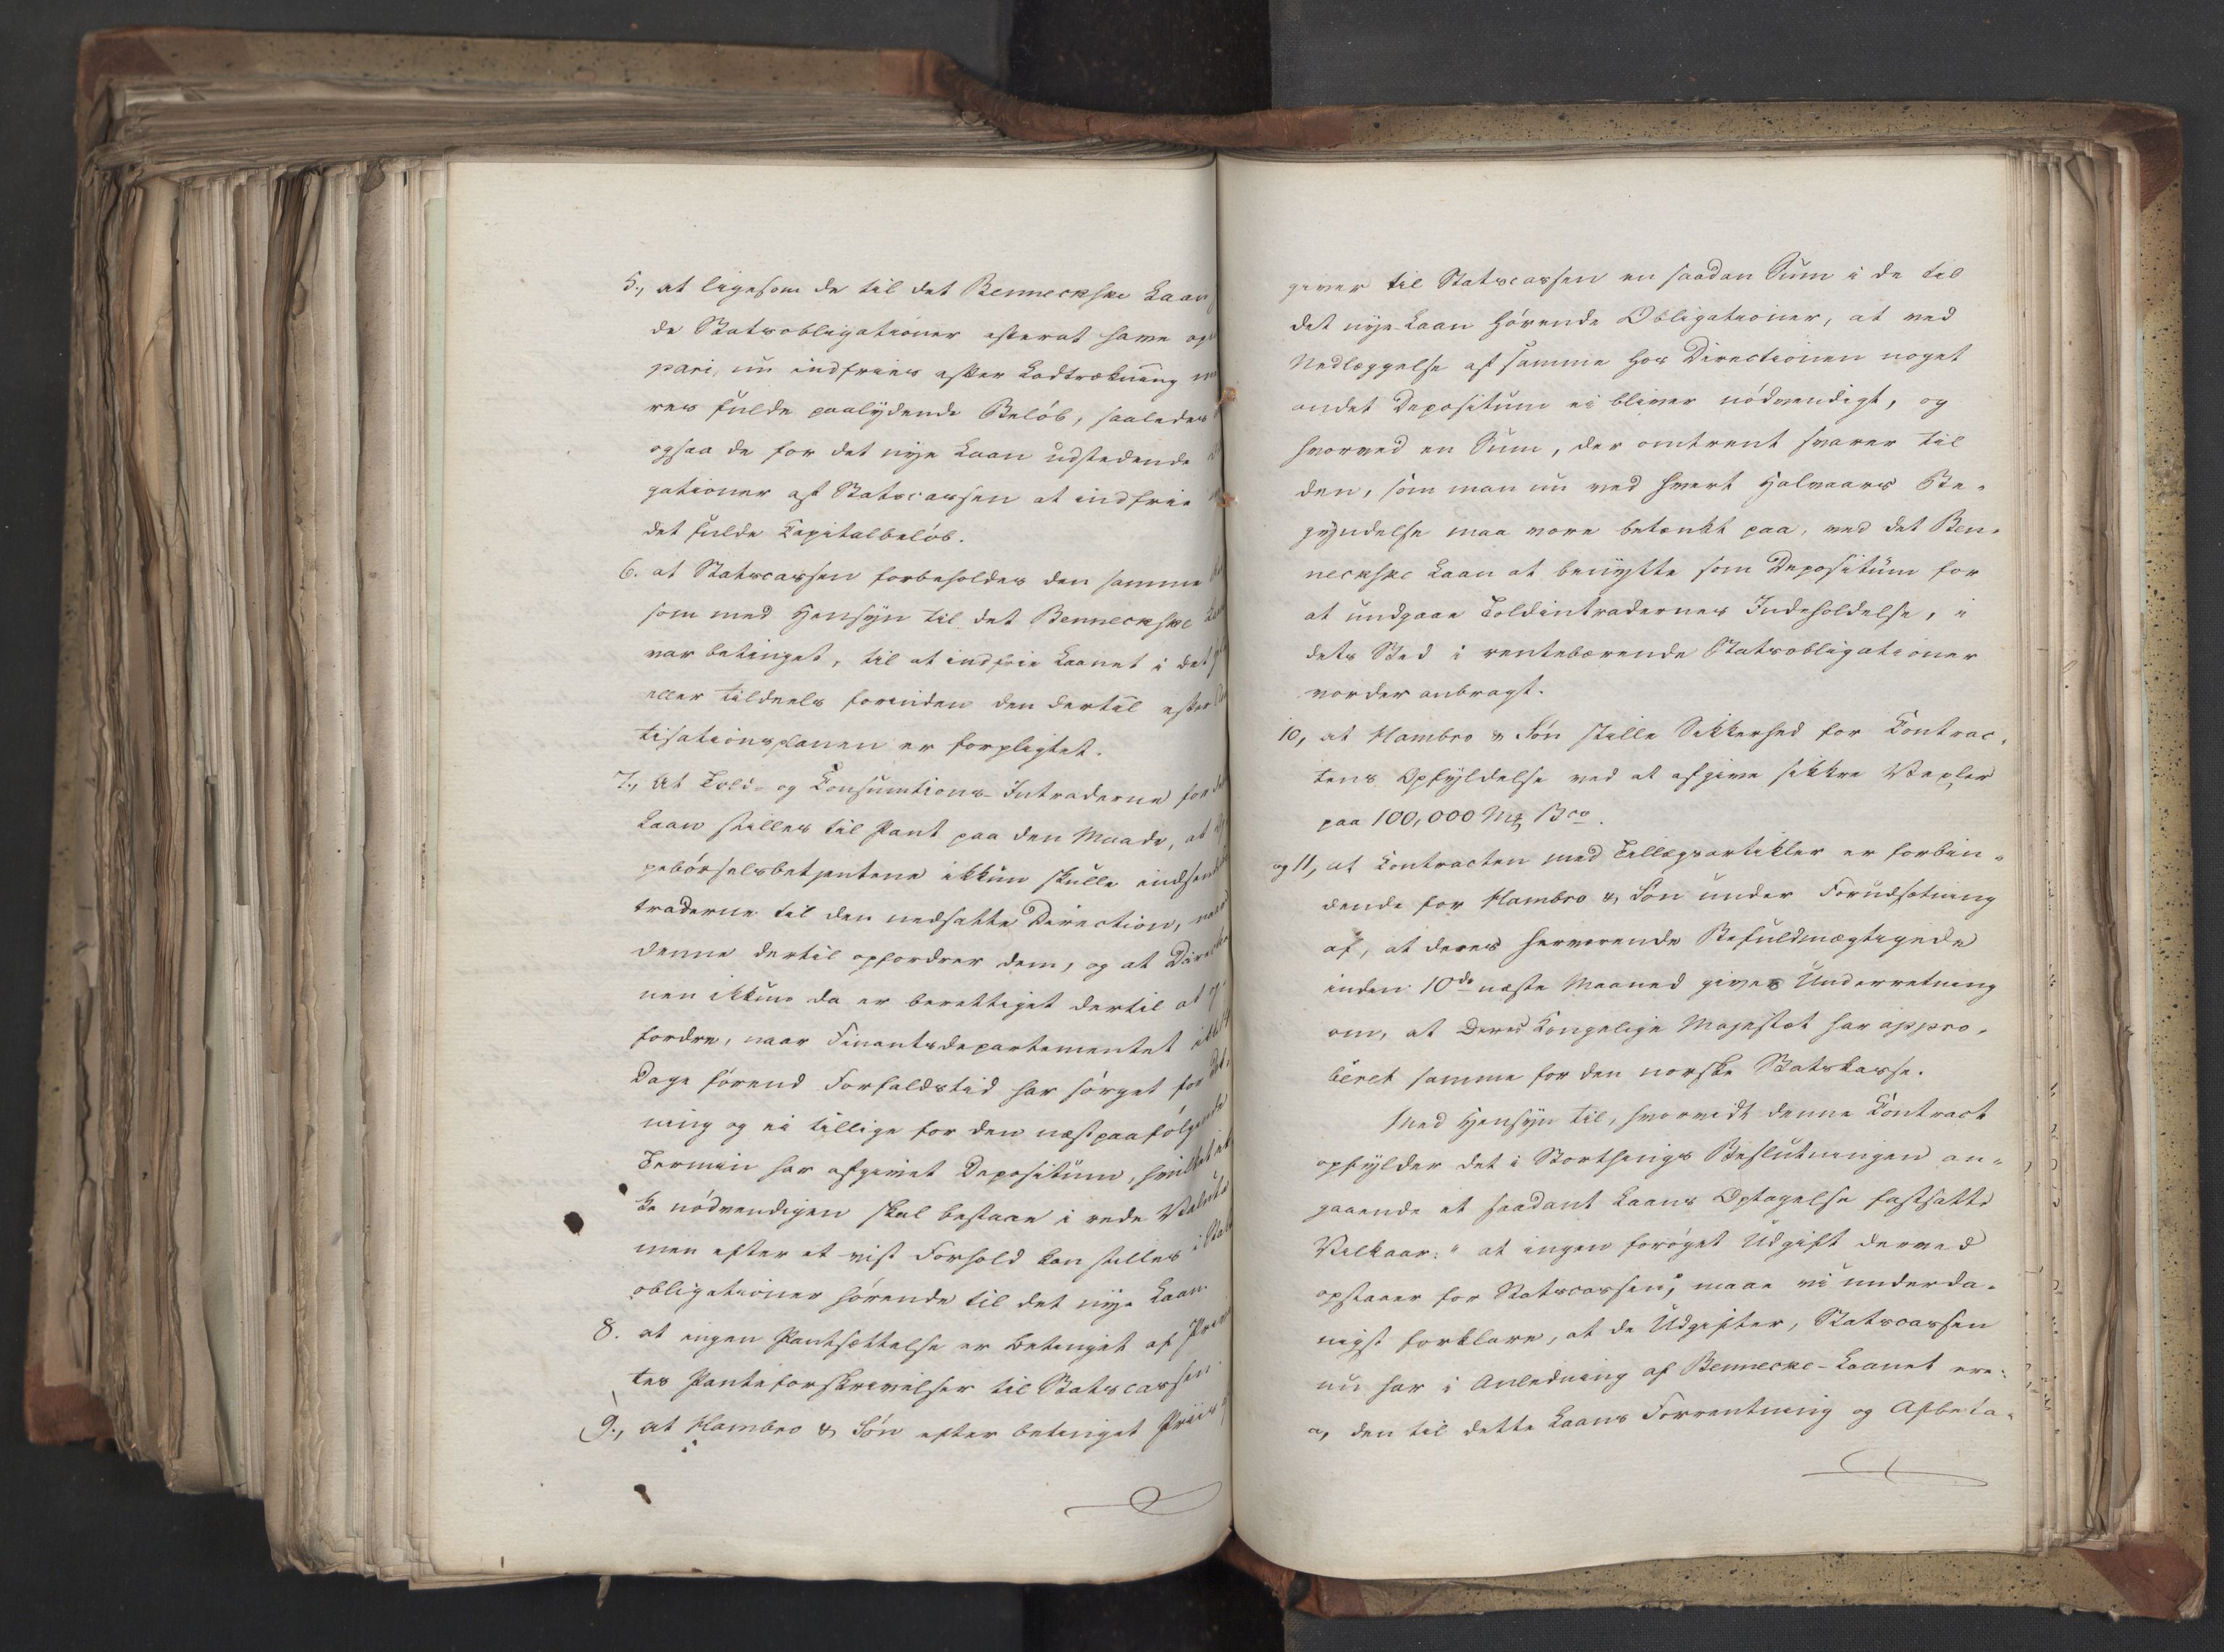 5., at ligesom de til det Benneckske Laan
de Statsobligationer efterat have
pari, nu indfries efter Lodtrækning
res fulde paalydende Beløb, saaledes
ogsaa de for det nye Laan udstedende
gationer af Statscassen at indfrie
det fulde Capitalbeløb.
6. at Statscassen forbeholdes den samme
som med Hensyn til det Benneckske
var betinget, til at indfrie Laanet i det
eller tildeels forinden den dertil efter
tisationsplanen er forpligtet.
7., at Told- og Consumtions-Intraderne for
Laan stilles til Pant paa den Maade, at
pebørselsbetjentene ikkun skulle indsen
traderne til den nedsatte Direction, naar
denne dertil opfordrer dem, og at Direc
nen ikkun da er berettiget dertil at
fordre, naar Finantsdepartementet
Dage førend Forfaldstid har sørget for
ning og ei tillige for den næstpaafølgende
Termin har afgivet Depositum, hvilket ik
ke nødvendigen skal bestaae i rede Valuta
men efter et vist Forhold kan stilles i Stats
obligationer hørende til det nye Laan.
8. at ingen Pantsættelse er betinget af Priva
tes Panteforskrivelser til Statscassen
9., at Hambro & Søn efter betinget Priis
giver til Statscassen en saadan Sum i de til
det nye Laan hørende Obligationer, at ved
Nedlæggelse af samme hos Directionen noget
andet Depositum ei bliver nødvendigt, og
hvorved en Sum, der omtrent svarer til
den, som man nu ved hvert Halvaars Be-
gyndelse maa være betænkt paa, ved det Ben-
neckske Laan at benytte som Depositum for
at undgaae Toldintradernes Indeholdelse, i
dets Sted i rentebærende Statsobligationer
vorder anbragt.
10, at Hambro & Søn stille Sikkerhed for Contrac-
tens Opfyldelse ved at afgive sikkre Vexler
paa 100,000 Mk Bco.
og 11, at Contracten med Tillægsartikler er forbin-
dende for Hambro & Søn under Forudsætning
af, at deres herværende Befuldmægtigede
inden 10de næste Maaned gives Underretning
om, at Deres Kongelige Majestæt har appro-
beret samme for den norske Statskasse.
Med Hensyn til, hvorvidt denne Contract
opfylder det i Storthings Beslutningen an-
gaaende et saadant Laans Optagelse fastsatte
Vilkaar: "at ingen forøget Udgift derved
opstaaer for Statscassen", maae vi underda-
nigst forklare, at de Udgifter, Statscassen
nu har i Anledning af Bennecke-Laanet ere:
a, den til dette Laans Forrentning og Afbeta-